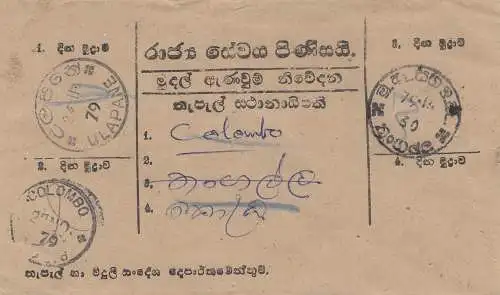 1. දින මුද්‍රාව
රාජ්‍ය සේවය පිණිසයි.
3. දින මුද්‍රාව
මුදල් ඇණවුම් නිවේදන
තැපැල් ස්ථානාධිපති
ULAPANE
79
1. Colombo
2. දින මුද්‍රාව
2.
4. දින මුද්‍රාව
COLOMBO
79
3. තංගල්ල
4.
තැපැල් හා විදුලි සංදේශ දෙපාර්තමේන්තුව.